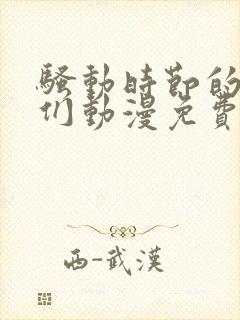 騷動時節的
们動漫免費
西-武漢